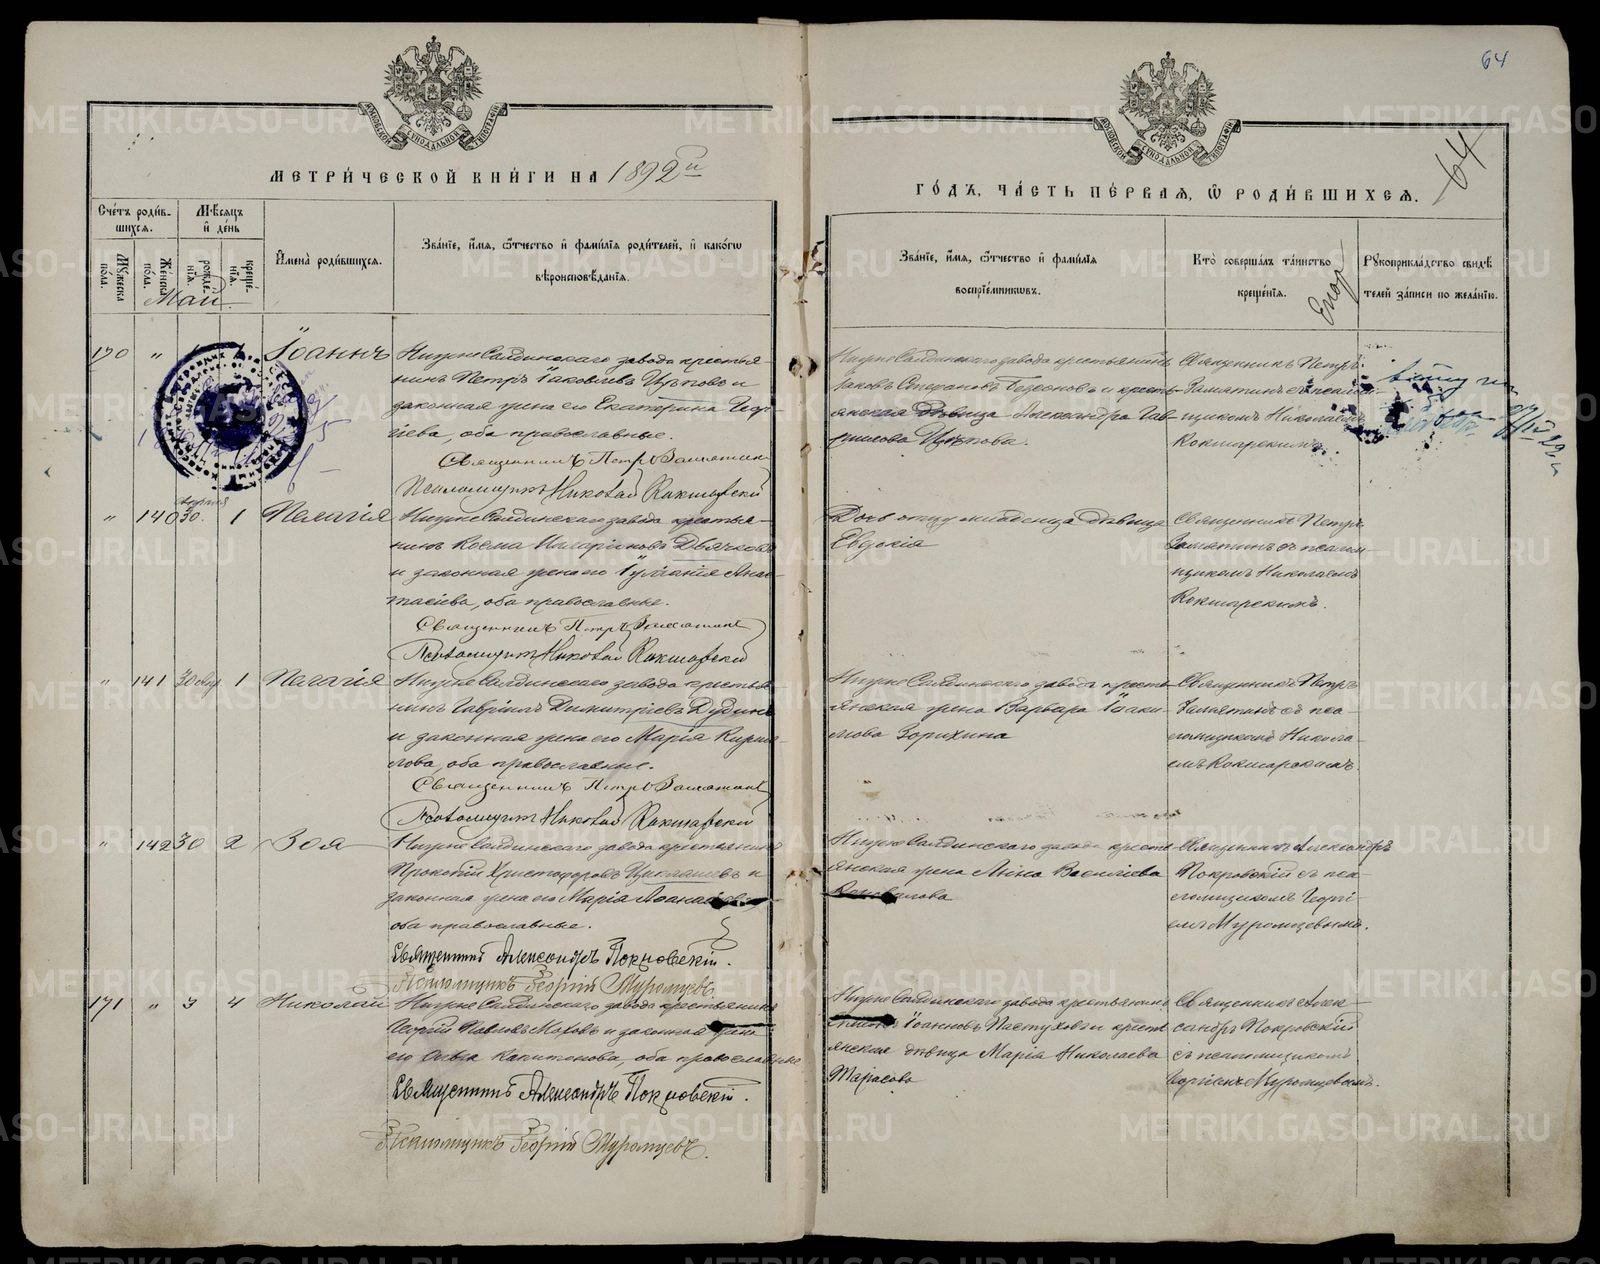 64
64
МЕТРИ́ЧЕСКОЙ КНИ́ГИ НА 1892й
ГО́ДЪ, ЧА́СТЬ ПЕ́РВАЯ, Ѡ РОДИ́ВШИХСЯ.
Сче́тъ роди́в-
шихся.
Мѣ́сяцъ
и҆ де́нь
Му́жеска
по́ла.
Же́нска
по́ла.
рожде́-
нїѧ.
креще́-
нїѧ.
И҆мена̀ роди́вшихсѧ.
Зва́нїе, и҆́мѧ, ѻ҆́тчество и҆ фами́лїѧ роди́телей, и҆ како́гѡ
вѣроисповѣ́данїѧ.
Зва́нїе, и҆́мѧ, ѻ҆́тчество и҆ фами́лїѧ
воспрїе́мникѡвъ.
Кто̀ соверша́лъ та́инство
креще́нїѧ.
Рꙋкоприкла́дство свидѣ́
телей за́писи по жела́нїю.
Май
170 " 1 Іоаннъ
Нижне Салдинскаго завода крестья-
нинъ Петръ Іаковлевъ и
законная жена его Екатерина Геор-
гіева, оба православные.
Священникъ Петръ Замятинъ
Псаломщикъ Николай Кокшарскій
Нижне Салдинскаго завода крестьянинъ
Іаковъ Стефановъ и кресть-
янская дѣвица Александра Гав-
рилова
Священникъ Петръ
Замятинъ съ псалом-
щикомъ Николаемъ
Кокшарскимъ.
" 140 апрѣля 30. 1 Пелагія
Нижне Салдинскаго завода крестья-
нинъ Косма Иларіоновъ Дьячковъ
и законная жена его Іуліанія Анас-
тасіева, оба православные.
Священникъ Петръ Замятинъ
Псаломщикъ Николай Кокшарскій
Дочь отцу младенца дѣвица
Евдокія
Священникъ Петръ
Замятинъ съ псалом-
щикомъ Николаемъ
Кокшарскимъ.
" 141 30 апр 1 Пелагія
Нижне Салдинскаго завода крестья-
нинъ Гавріилъ Димитріевъ Дудинъ
и законная жена его Марія Кирил-
лова, оба православные.
Священникъ Петръ Замятинъ
Псаломщикъ Николай Кокшарскій
Нижне Салдинскаго завода кресть-
янская жена Варвара Іоаки-
мова Зорихина
Священникъ Петръ
Замятинъ съ пса-
ломщикомъ Никола-
емъ Кокшарскимъ.
" 142 30 2 Зоя
Нижне Салдинскаго завода крестьянинъ
Прокопій Христофоровъ и
законная жена его Марія
оба православные.
Священникъ Александръ Покровскій.
Псаломщикъ Георгій Муромцевъ.
Нижне Салдинскаго завода кресть-
янская жена Анна Васильева
Коновалова
Священникъ Александръ
Покровскій съ пса-
ломщикомъ Георгі-
емъ Муромцевымъ.
171 " 3 4 Николай
Нижне Салдинскаго завода крестьянинъ
Георгій Павловъ Моховъ и законная жена
его Ольга Капитонова, оба православные
Священникъ Александръ Покровскій.
Псаломщикъ Георгій Муромцевъ.
Нижне Салдинскаго завода крестьянинъ
Іоанновъ Пастуховъ и кресть
янская дѣвица Марія Николаева
Тарасова
Священникъ Алек-
сандръ Покровскій
съ псаломщикомъ
Георгіемъ Муромцевымъ.
METRIKI.GASO-URAL.RU